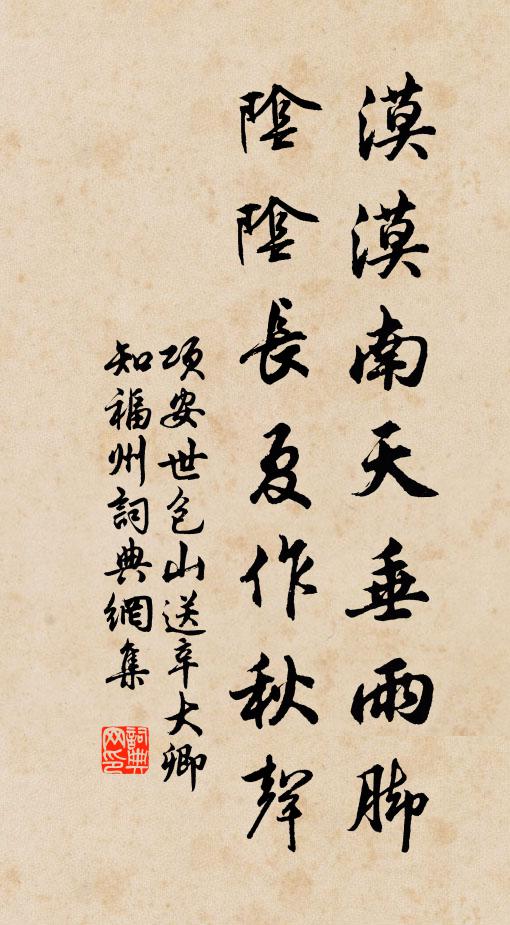 漠漠南天垂雨脚
陰陰長夏作秋聲
項安世包山送辛大卿
知福州詞典網集
詞典网印